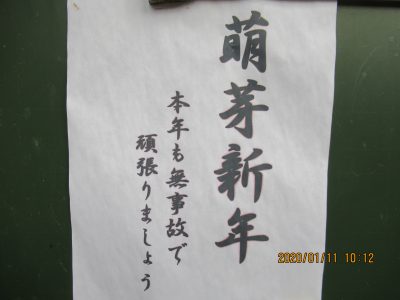 萌芽新年
本年も無事故で
頑張りましょう
2020/01/11 10:12